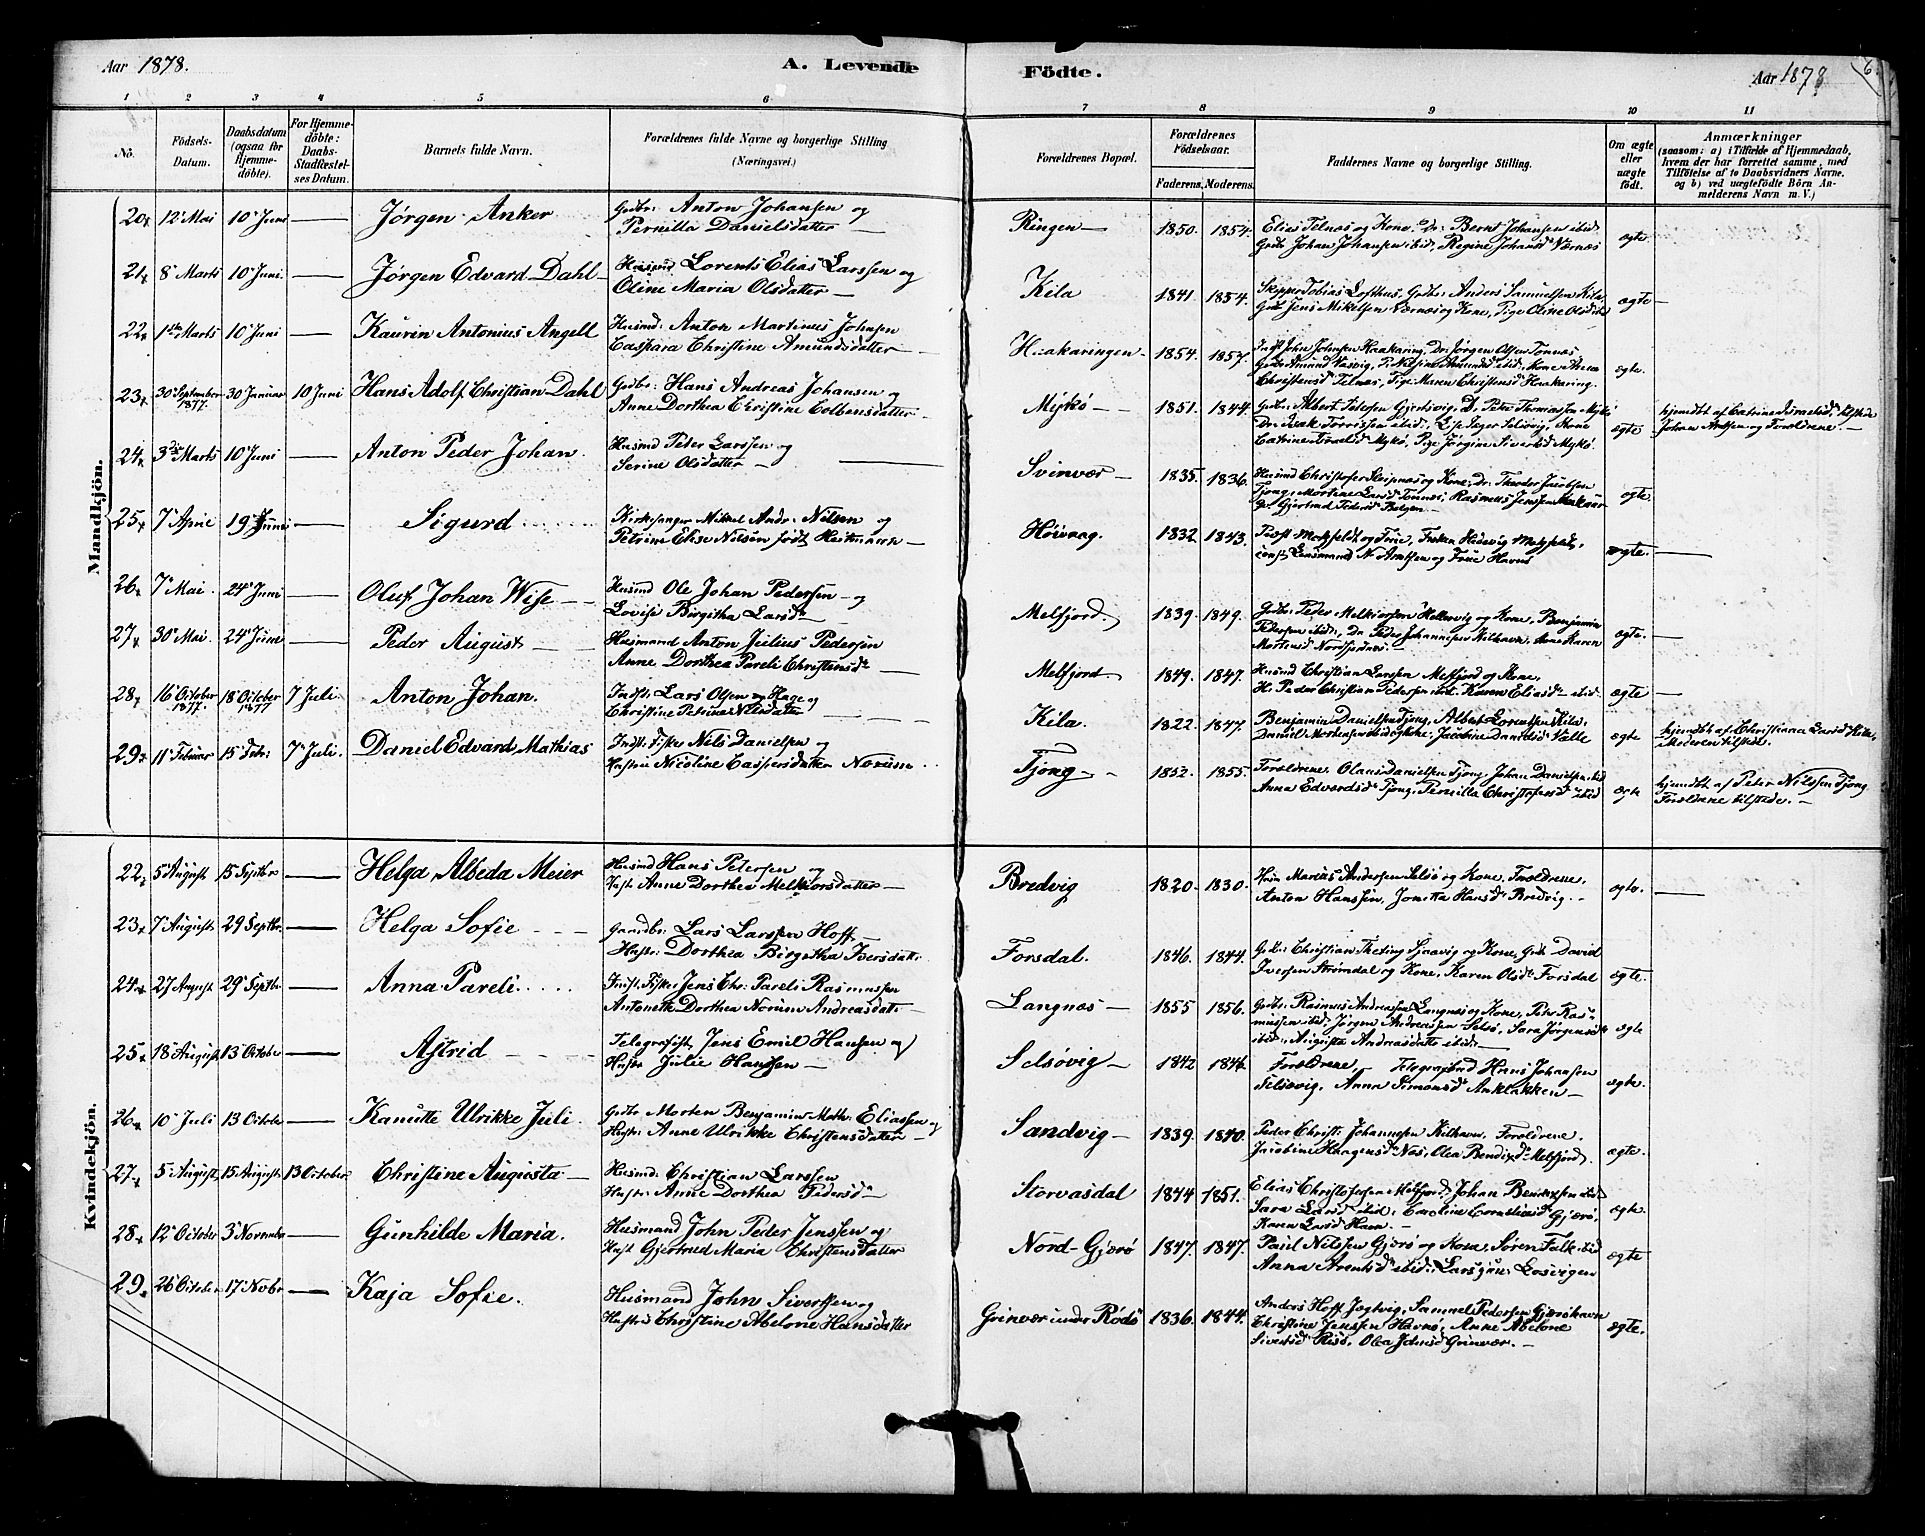 Aar 1878.
A. Levende Födte.
Aar 1878
6.
1 2 3 4 5 6 7 8 9 10 11
No.
Födsels-Datum.
Daabsdatum (ogsaa for Hjemme-döbte).
For Hjemme-döbte: Daabs-Stadfæstel-ses Datum.
Barnets fulde Navn.
Forældrenes fulde Navne og borgerlige Stilling (Næringsvei.)
Forældrenes Bopæl.
Forældrenes Födselsaar.
Faderens. Moderens.
Faddernes Navne og borgerlige Stilling.
Om ægte eller uægte født.
Anmærkninger
(saasom: a) i Tilfælde af Hjemmedaab,
hvem der har forrettet samme, med
Tilföielse af to Daabsvidners Navne,
og b) ved uægtefödte Börn An-
melderens Navn m. V.)
Mandkjön.
20 12 Mai 10 Juni — Jørgen Anker Gdbr: Anton Johansen og
Pernilla Danielsdatter —
Ringen — 1850. 1854. Elias Telnæs og Kone. Dr: Bernt Johansen ibid,
Gdbr Johan Johansen ibid, Regine Johansd Værnæs
ægte
21 8 Marts 10 Juni — Jørgen Edvard Dahl Husmd Lorents Elias Larssen og
Oline Maria Olsdatter —
Kila 1841. 1854. Skipper Tobias Lofthus, Gdbr: Anders Samuelsen Kila
Gdb Jens Mikelsen Værnæs og Kone, Pige Oline Olsd ibid
ægte —
22 1ste Marts 10 Juni — Kaurin Antonius Angell Husmd: Anton Martinus Johnsen
Caspara Christine Amundsdatter —
Haakaringen 1854. 1857. Indst John Johnsen Haakaring, Dr: Jørgen Olsen Tonnæs
Christensd Telnæs, Pige Maren Christensd Haakaring.
ægte.
23 30 September 1877. 30 Januar 10 Juni Hans Adolf Christian Dahl Gdbr: Hans Andreas Johansen og
Anne Dorthea Christine Colbensdatter —
Mykø — 1851. 1844. Gdbr: Albert Petersen Gjersvig, D. Peter Thomassen Mykø
Catrine Israelsd Mykø, Pige Jørgine Sivertsd Mykø.
ægte hjemdbt af Catrine Israelsd, tilstede
Johan Antsen og Forældrene. —
24 3die Marts 10 Juni — Anton Peder Johan. Husmd Peter Larssen og
Serine Olsdatter —
Svinvær — 1835. 1836. Husmd Christofer Sleipnæs og Kone, Dr. Theodor Jacobsen
Tjong, Martine Larsd Tonnæs, Rasmus Jenssen
Gjertrud Pedersd Bolgen —
ægte.
25 7 April 19 Juni — Sigurd Kirkesanger Mikkel Andr: Nilsen og
Petrine Elise Nilsen født Heitmann —
Høivaag. 1832 1843. Provst Motzfeldt og Frue, Frøken Hedevig Motzfeldt,
const Lensmand N. Arntsen og Frue Havnø
ægte. —
26 7 Mai. 24 Juni — Oluf Johan Wise — Husmd Ole Johan Pedersen — og
Lovise Birgitha Larsd —
Melfjord. 1839. 1849. Gdbr: Peder Melkiorssen Hellervig og Kone, Benjamin
Pedersen ibid, Dr Peder Johannesen Kilhavn, Anne Karen
Mortensd Nordfjordnæs. —
ægte. —
27 30 Mai. 24 Juni — Peder August — Husmand Anton Julius Pedersen
Anne Dorthea Pareli Christensd —
Melfjord 1849. 1847. Husmd Christian Larssen Melfjord og Kone,
H. Peder Christian Pedersen ibid. Karen Eliasd ibid.
ægte —
28 16 October 1877. 18 October 1877 7 Juli. Anton Johan. Indst: Lars Olsen Hage og
Christine Petrine Nilsdatter —
Kila. 1822. 1847. Benjamin Danielsen Tjong, Albert Lorentsen Kila,
Daniel Mortensen Jacobine Danielsd Valle
ægte hjemdbt af Christianna Larsd Kila,
Moderen tilsted.
29 11 Februar 15 Febr: 7 Juli. Daniel Edvard Mathias Indst: Fisker Nils Danielsen og
Hustru Nicoline Caspersdatter Norum.
Tjong — 1852. 1855. Forældrene, Olaus Danielsen Tjong, Johan Danielsen ibid
Anna Edvardsd Tjong, Pernilla Christofersd ibid
ægte hjemdbt af Peter Nilssen Tjong
Forældrene tilstede. —
Kvindekjön.
22 5 August 15 Septbr — Helga Albeda Meier Husmd Hans Petersen og
Hust Anne Dorthea Melkiorsdatter —
Bredvig 1820. 1830. Husm Marius Andersen Selsø og Kone, Forældrene,
Anton Hanssen, Jonetta Hansd Bredvig. —
ægte. —
23 7 August 29 Septbr. — Helga Sofie — Gaardbr: Lars Larssen Hoff —
Hustr: Dorthea Birgitha Iversdatt:
Forsdal. 1846. 1844. Gdbr: Christian Theting Sjaavig og Kone, Gdb David
Iversen Strømdal og Kone, Karen Olsd Forsdal
ægte.
24 27 August 29 Septbr — Anna Pareli. Indst. Fisker Jens Chr: Pareli Rasmussen
Antonette Dorthea Norum Andreasdatt: —
Langnæs — 1855 1856. Gdbr: Rasmus Andreassen Langnæs og Kone, Peter Ras-
mussen ibid, Jørgen Andreassen Selsø, Sara Jørgensd
ibid, Augusta Andreasdatt ibid. —
ægte
25 18 August 13 October — Astrid — Telegrafist Jens Emil Hansen og
Hustr Julie Hanssen —
Selsøvig — 1842 1846. Forældrene, — Telegrafbud Hans Johansen
Selsøvig, Anna Simonsd Anklakken —
ægte.
26 10 Juli 13 Octobr — Kanutte Ulrikke Juli. Gdbr Morten Benjamin Math: Eliassen og
Hustr: Anne Ulrikke Christensdatter —
Sandvig — 1839. 1840. Peder Christ: Johannesen Kilhavn, Forældrene,
Jacobine Haagensd Næs, Olea Bendixsd Melfjord.
ægte.
27 5 August 15 August 13 October Christine Augusta — Husmd: Christian Larssen
Hustr: Anne Dorthea Pedersd —
Storvasdal 1844 1851. Elias Christofersen Melfjord, Johan Bendixsen ibid
Sara Larsd ibid, Caroline Corneliusd Gjærø,
Karen Larsd Havn. —
ægte.
28 12 October 3 November — Gunhilde Maria. Husmand John Peder Jenssen og
Hust Gjertrud Maria Christensdatter
Nord-Gjærø 1847. 1847. Paul Nilssen Gjærø og Kone, Søren Falk ibid
Anna Arentsd ibid,
ægte
29. 26 October 17 Novbr — Kaja Sofie. Husmand John Sivertsen og
Hustru Christine Abelone Hansdatter
Grinvær under Rødø 1836. 1844. Anders Hoff Jegtvig, Samuel Pedersen Gjærøhavn
Christine Jenssen Havnø, Anne Abelone
Sivertsd Risø, Olea Johnsd Grinvær. —
ægte.